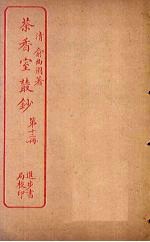 清 俞曲園著
茶香室叢鈔
第十二冊
進步書
局校印